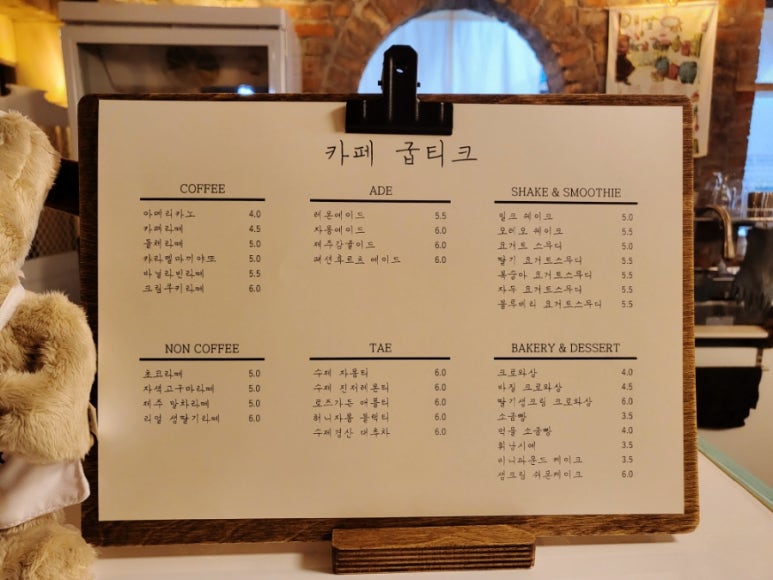 카페 굽티크
COFFEE
아메리카노 4.0
카페라떼 4.5
돌체라떼 5.0
카라멜마끼야또 5.0
바닐라빈라떼 5.5
크림쿠키라떼 6.0
ADE
레몬에이드 5.5
자몽에이드 6.0
제주감귤에이드 6.0
패션후르츠 에이드 6.0
SHAKE & SMOOTHIE
밀크 쉐이크 5.0
오레오 쉐이크 5.5
요거트 스무디 5.0
딸기 요거트스무디 5.5
복숭아 요거트스무디 5.5
자두 요거트스무디 5.5
블루베리 요거트스무디 5.5
NON COFFEE
초코라떼 5.0
자색고구마라떼 5.0
제주 말차라떼 5.0
리얼 생딸기라떼 6.0
TAE
수제 자몽티 6.0
수제 진저레몬티 6.0
로즈가든 애플티 6.0
허니자몽 블랙티 6.0
수제경산 대추차 6.0
BAKERY & DESSERT
크로와상 4.0
바질 크로와상 4.5
딸기생크림 크로와상 6.0
소금빵 3.5
먹물 소금빵 4.0
휘낭시에 3.5
미니파운드 케이크 3.5
생크림 쉬폰케이크 6.0